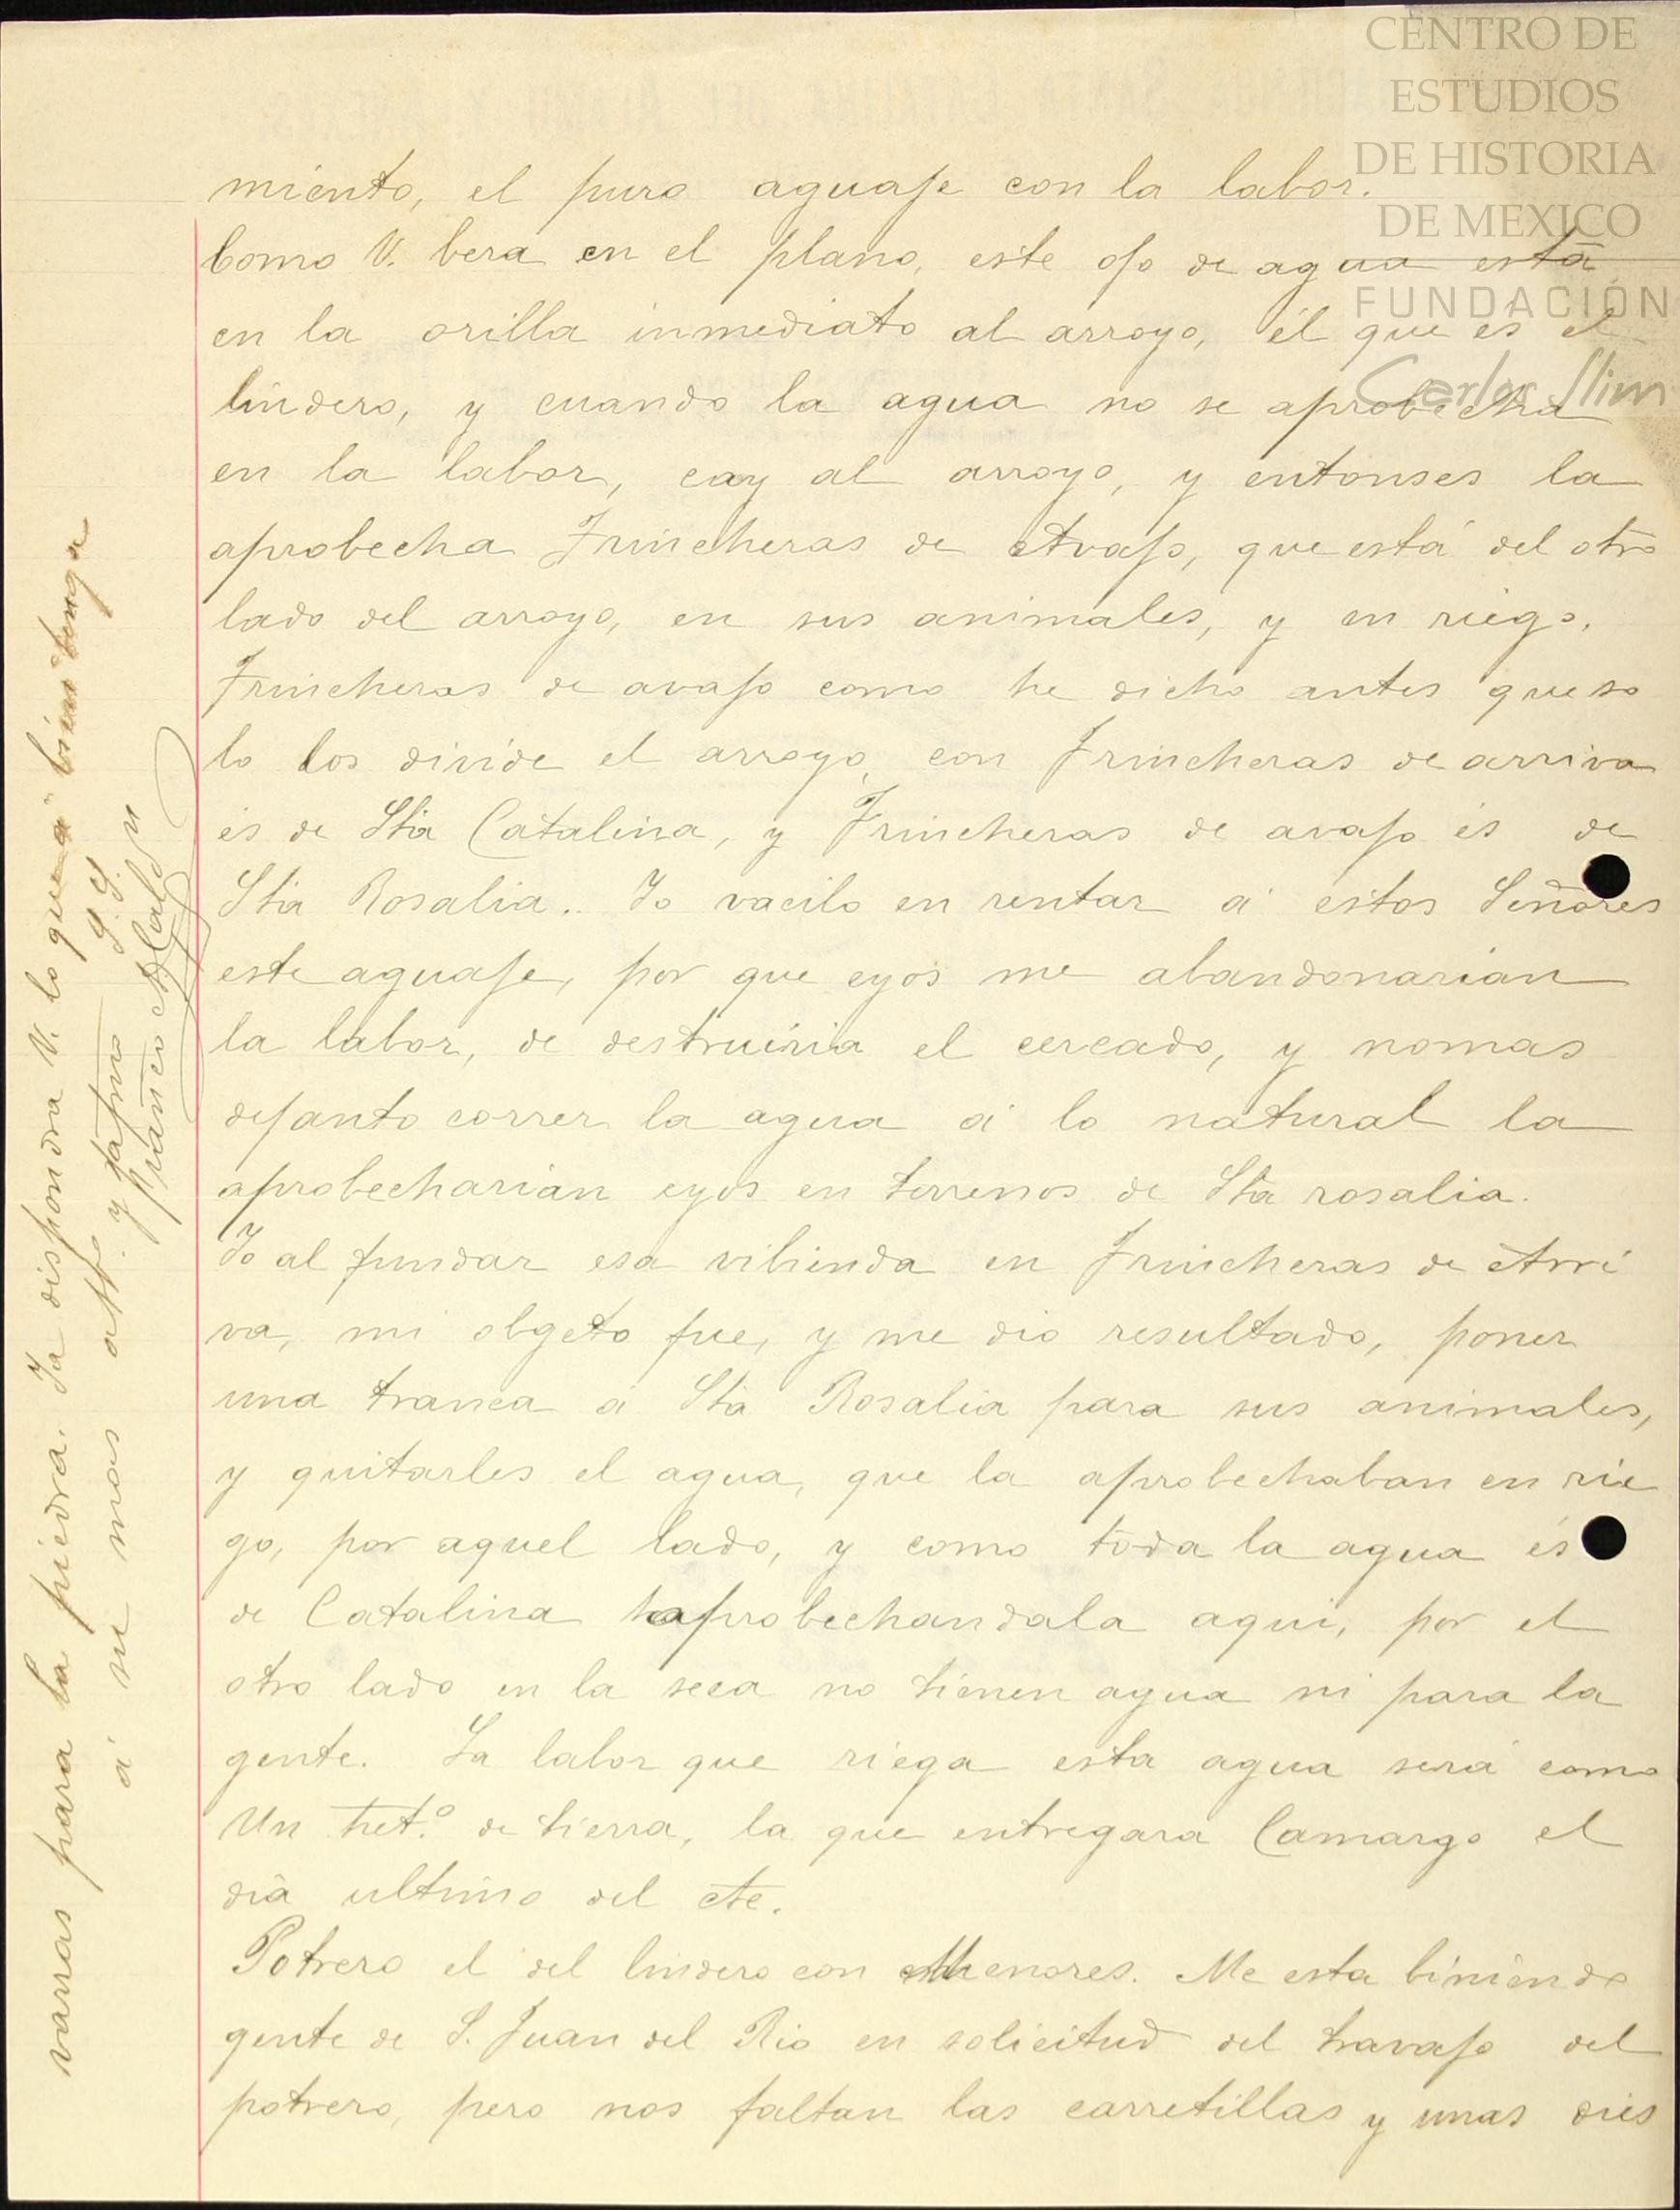 CENTRO DE
ESTUDIOS
DE HISTORIA
DE MEXICO
FUNDACIÓN
Carlos Slim
miento, el puro aguaje con la labor.
Como V. bera en el plano, este ojo de agua está
en la orilla inmediato al arroyo, él que es el
lindero, y cuando la agua no se aprobecha
en la labor, cay al arroyo, y entonses la
aprobecha Trincheras de Avajo, que está del otro
lado del arroyo, en sus animales, y en riego.
Trincheras de avajo como he dicho antes que so
lo los divide el arroyo, con Trincheras de arriva
es de Sta Catalina, y Trincheras de avajo és de
Sta Rosalia. Yo vacilo en rentar á estos Señores
este aguaje, por que eyos me abandonarian
la labor, de destruiria el cercado, y nomas
dejanto correr la agua á lo natural la
aprobecharian eyos en terrenos de Sta rosalia.
Yo al fundar esa vibienda en Trincheras de Arri
va, mi obgeto fue, y me dio resultado, poner
una tranca á Sta Rosalia para sus animales,
y quitarles el agua, que la aprobechaban en rie
go, por aquel lado, y como toda la agua és
de Catalina aprobechandala aqui, por el
otro lado en la seca no tienen agua ni para la
gente. La labor que riega esta agua será como
Un het.º de tierra, la que entregara Camargo el
dia ultimo del cte.
Potrero el del lindero con Menores. Me esta biniendo
gente de S. Juan del Rio en solicitud del travajo del
potrero, pero nos faltan las carretillas y unas dies
varras para la piedra. Ya dispondra V. lo que á bien tenga
á su mas att. y afmo S. S.
Franco